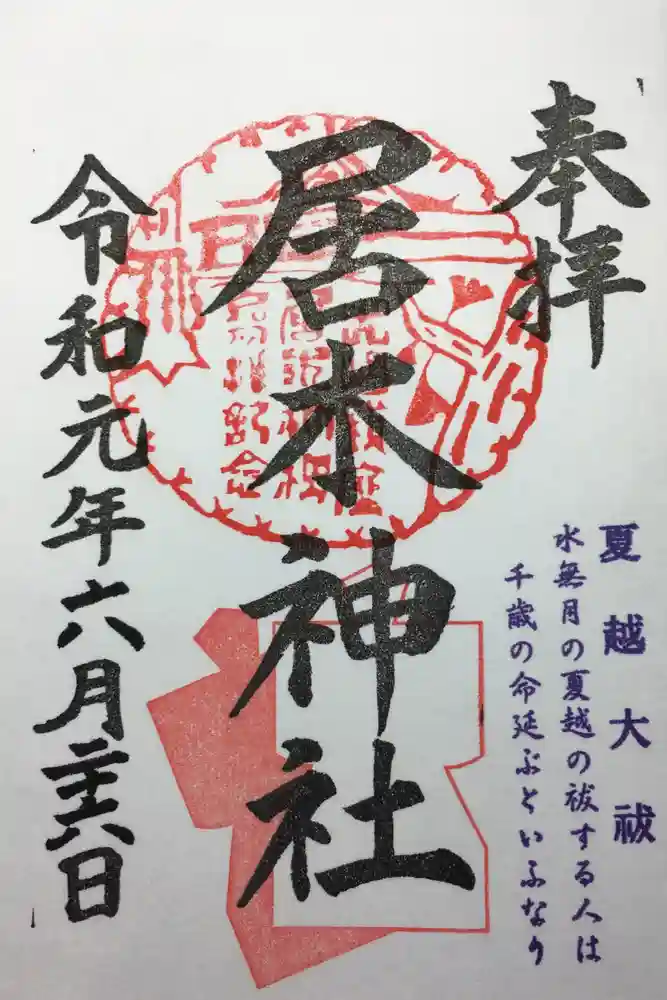 奉拝
夏越大祓
水無月の夏越の祓する人は
千歳の命延ぶといふなり
居木神社
令和元年六月二十六日